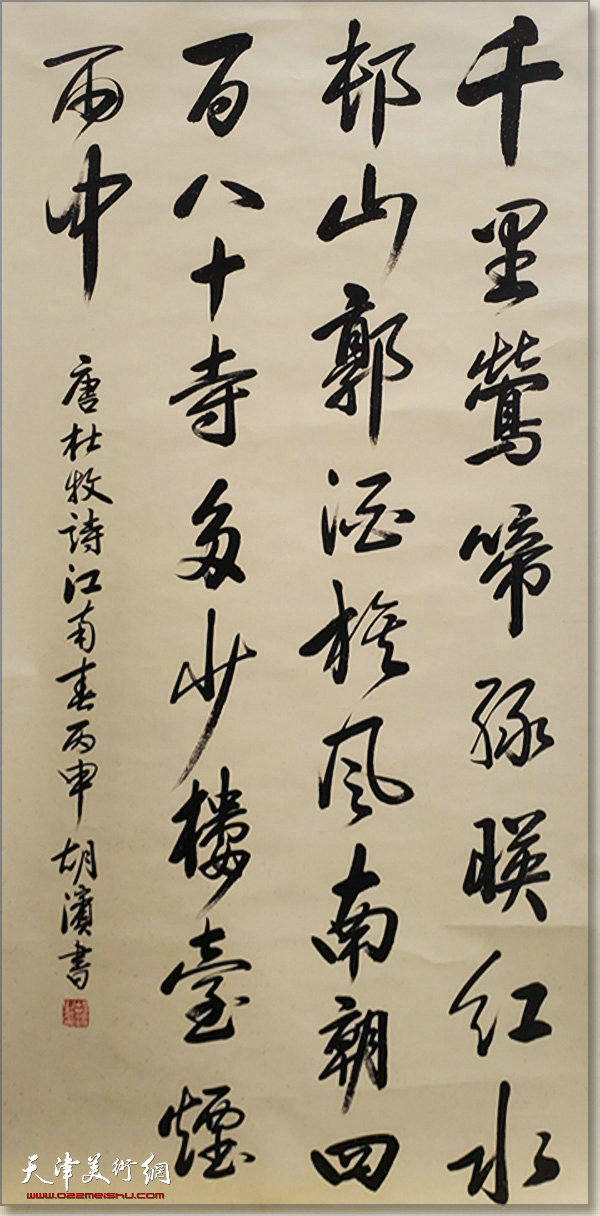 千里鶯啼綠暎紅水
邨山郭酒旗風南朝四
百八十寺多少樓臺煙
雨中
唐杜牧詩江南春丙申胡濱書
天津美術網
www.022meishu.com